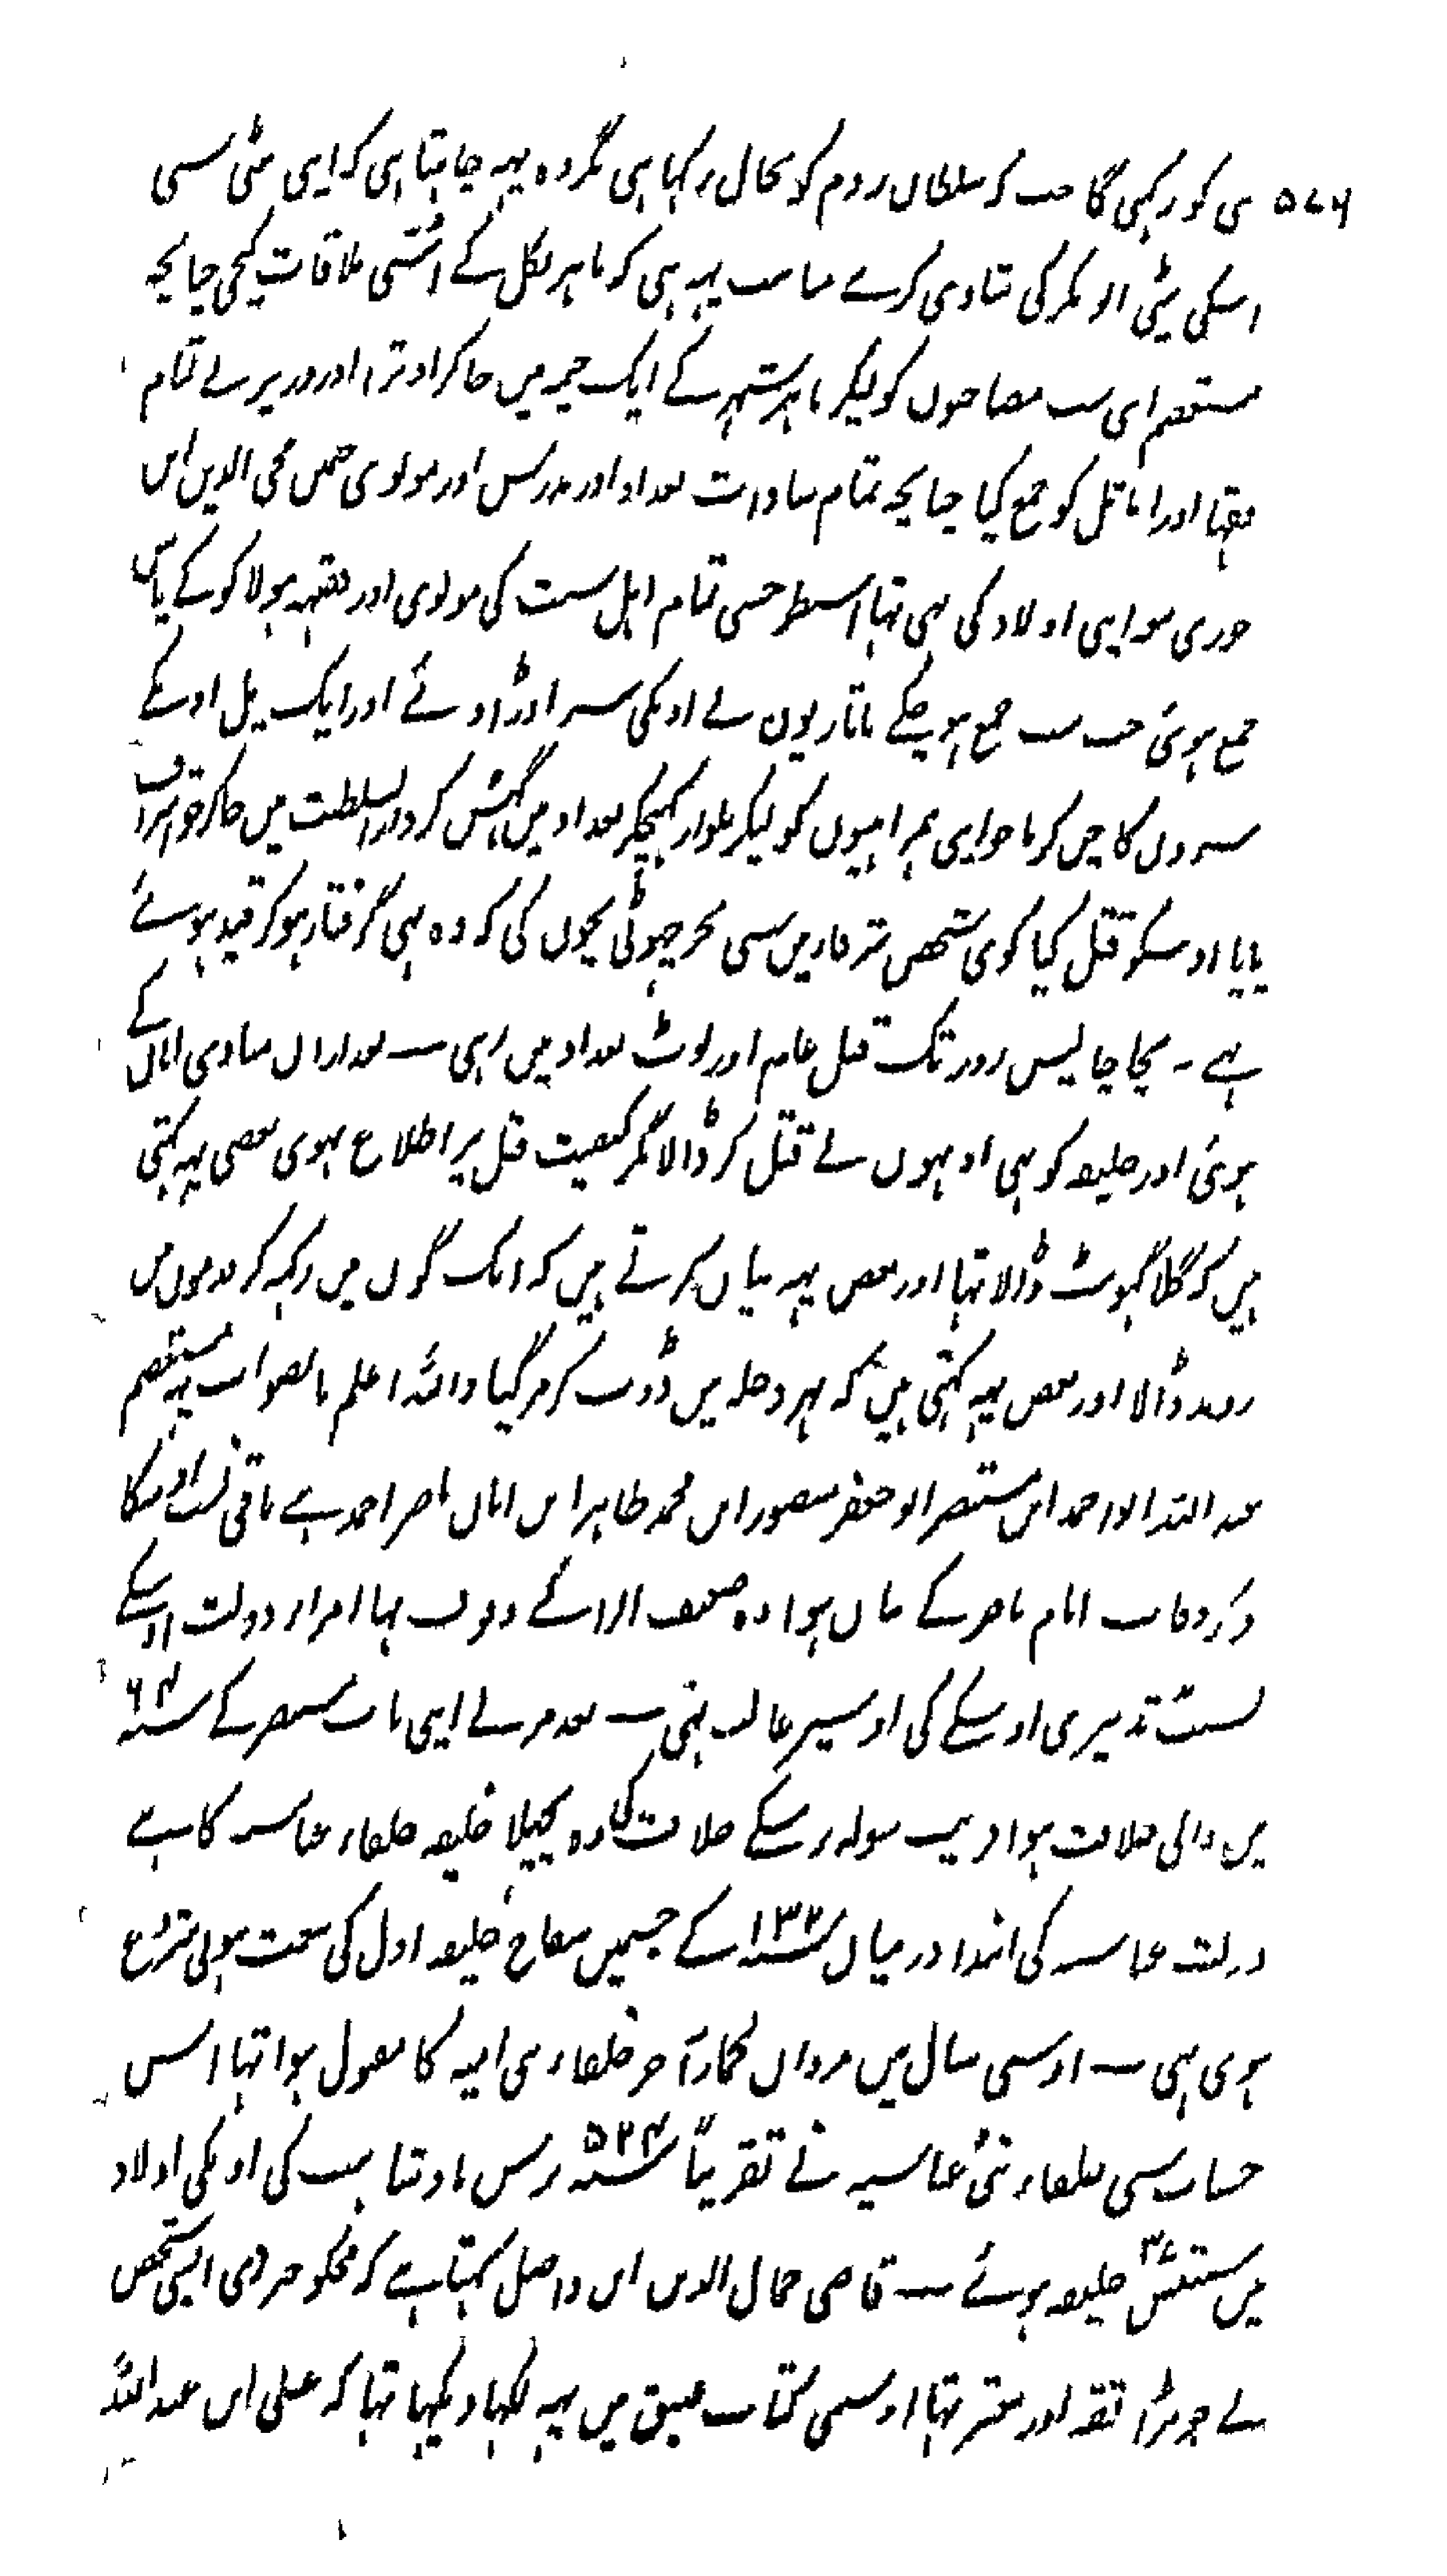 ۵۷۶ ہی کو رکہی گا جب کہ سلطان روم کو بحال رکہا ہی مگر وہ یہہ چاہتا ہی کہ اپنی بیٹی سی
اسکی بیٹی ابو بکر کی شادی کرے مناسب یہہ ہی کہ باہر نکل کے اسّی ملاقات کیجی چنانچہ
مستعصم اپنی سب مصاحبوں کو لیکر باہر شہر کے ایک خیمہ میں جاکر اوترا اور وزیر نے تمام
فقہا اور اماثل کو جمع کیا چنانچہ تمام سادات بغداد اور مدرس اور مولوی جمیں محی الدین ابن
جوزی مع اپنی اولاد کی بہی تہا اسطرحسی تمام اہل سنت کی مولوی اور فقیہہ ہولاکو کے پاس
جمع ہوئی جب سب جمع ہو چکے تاتاریون نے اونکی سر اوڑادئے اور ایک پل اونکے
سروں کا چن کر باجو اپنی ہمراہیوں کو لیکر تلوار کہینچکر بغداد میں گہس کر دارالسلطنت میں جاکر جو اشراف
پایا اوسکو قتل کیا کوی شخص شرفاء میں سی بجز چہوٹی بچوں کی کہ وہ بہی گرفتار ہوکر قید ہوئے
ہے ۔ بچا چالیس روز تک قتل عام اور لوٹ بغداد میں رہی ۔ بعد ازاں منادی امان کے
ہوئی اور خلیفہ کو بہی اونہوں نے قتل کر ڈالا مگر کیفیت قتل پر اطلاع ہوی بعضی یہہ کہتی
ہیں کہ گلا گہوٹ ڈالا تہا اور بعض یہہ بیاں کرتے ہیں کہ ایک گوں میں رکہہ کر قدموں میں
روند ڈالا اور بعض یہہ کہتی ہیں کہ نہر دجلہ میں ڈوب کر مر گیا واللّہ اعلم بالصواب یہہ مستعصم
عبد اللہ ابو احمد ابن مستنصر ابو جعفر منصور ابن محمد طاہر ابن امام ناصر احمد ہے باقی نسب اوسکا
ذکر وفات امام ناصر کے بیاں ہوا وہ ضعیف الراے تہا امراء دولت اوسکے
بسبب تدبیری اوسکے کی اوسپر غالب تہی ۔ بعد مرنے اپنی باپ مستنصر کے سنہ ۶۴۰
میں والی خلافت ہوا قریب سولہ برس کے خلافت کی وہ پچہلا خلیفہ خلفاء عباسیہ کا ہے
دولت عباسیہ کی ابتدا درمیاں سنہ ۱۳۲ کے جسمیں سفاح خلیفہ اول کی بیعت ہوئی شروع
ہوی ہی ۔ اوسی سال میں مرواں الحمار آخر خلفاء بنی امیہ کا مقتول ہوا تہا اس
حساب سی خلفاء بنی عباسیہ نے تقریباً سنہ ۵۲۴ برس بادشاہت کی اونکی اولاد
میں سینتیس ۳۷ خلیفہ ہوئے ۔ قاضی جمال الدین ابن واصل کہتا ہے کہ مجکو خبر دی ایسی شخص
نے جو بڑا ثقہ اور معتبر تہا اوسی کتاب عتیق میں یہہ لکہا دیکہا تہا کہ علی ابن عبد اللہ